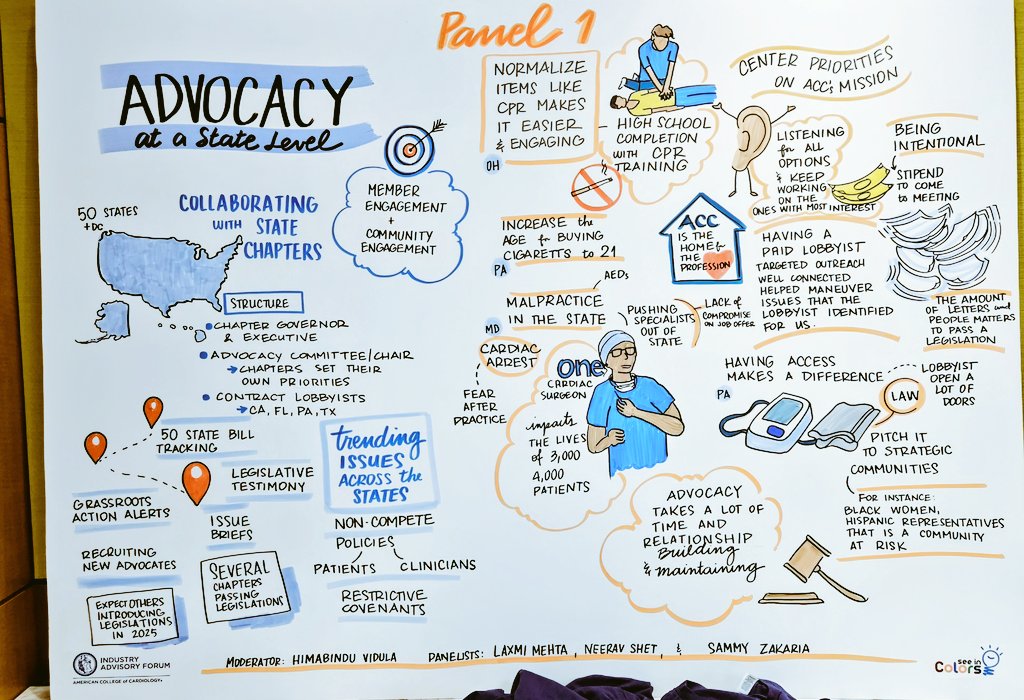 Panel 1
ADVOCACY
at a State Level
MEMBER
ENGAGEMENT
+
COMMUNITY
ENGAGEMENT
50 STATES
+ DC
COLLABORATING
WITH STATE
CHAPTERS
STRUCTURE
CHAPTER GOVERNOR
& EXECUTIVE
ADVOCACY COMMITTEE/CHAIR
→ CHAPTERS SET THEIR
OWN PRIORITIES
CONTRACT LOBBYISTS
→ CA, FL, PA, TX
50 STATE BILL
TRACKING
LEGISLATIVE
TESTIMONY
GRASSROOTS
ACTION ALERTS
ISSUE
BRIEFS
RECRUITING
NEW ADVOCATES
SEVERAL
CHAPTERS
PASSING
LEGISLATIONS
EXPECT OTHERS
INTRODUCING
LEGISLATIONS
IN 2025
trending
ISSUES
ACROSS the
STATES
NON-COMPETE
POLICIES
PATIENTS CLINICIANS
RESTRICTIVE
COVENANTS
NORMALIZE
ITEMS LIKE
CPR MAKES
IT EASIER
& ENGAGING
OH
HIGH SCHOOL
COMPLETION
WITH CPR
TRAINING
INCREASE the
AGE for BUYING
CIGARETTS to 21
PA
AEDs
MALPRACTICE
IN THE STATE
MD
PUSHING
SPECIALISTS
OUT OF
STATE
LACK of
COMPROMISE
ON JOB OFFER
CARDIAC
ARREST
FEAR
AFTER
PRACTICE
one
CARDIAC
SURGEON
impacts
THE LIVES
of 3,000
4,000
PATIENTS
ADVOCACY
TAKES A LOT OF
TIME AND
RELATIONSHIP
Building
& maintaining
CENTER PRIORITIES
ON ACC's MISSION
LISTENING
for ALL
OPTIONS
& KEEP
WORKING
ON THE
ONES WITH MOST INTEREST
BEING
INTENTIONAL
STIPEND
TO COME
to MEETING
ACC
IS THE
HOME for
THE
PROFESSION
HAVING A
PAID LOBBYIST
TARGETED OUTREACH
WELL CONNECTED
HELPED MANEUVER
ISSUES THAT THE
LOBBYIST IDENTIFIED
FOR US.
THE AMOUNT
OF LETTERS and
PEOPLE MATTERS
TO PASS A
LEGISLATION
HAVING ACCESS
MAKES A DIFFERENCE
PA
LOBBYIST
OPEN A
LOT OF
DOORS
LAW
PITCH IT
TO STRATEGIC
COMMUNITIES
FOR INSTANCE:
BLACK WOMEN,
HISPANIC REPRESENTATIVES
THAT IS A COMMUNITY
AT RISK
INDUSTRY
ADVISORY FORUM
AMERICAN COLLEGE of CARDIOLOGY.
MODERATOR: HIMABINDU VIDULA PANELISTS: LAXMI MEHTA, NEERAV SHET, & SAMMY ZAKARIA
see in
Colors